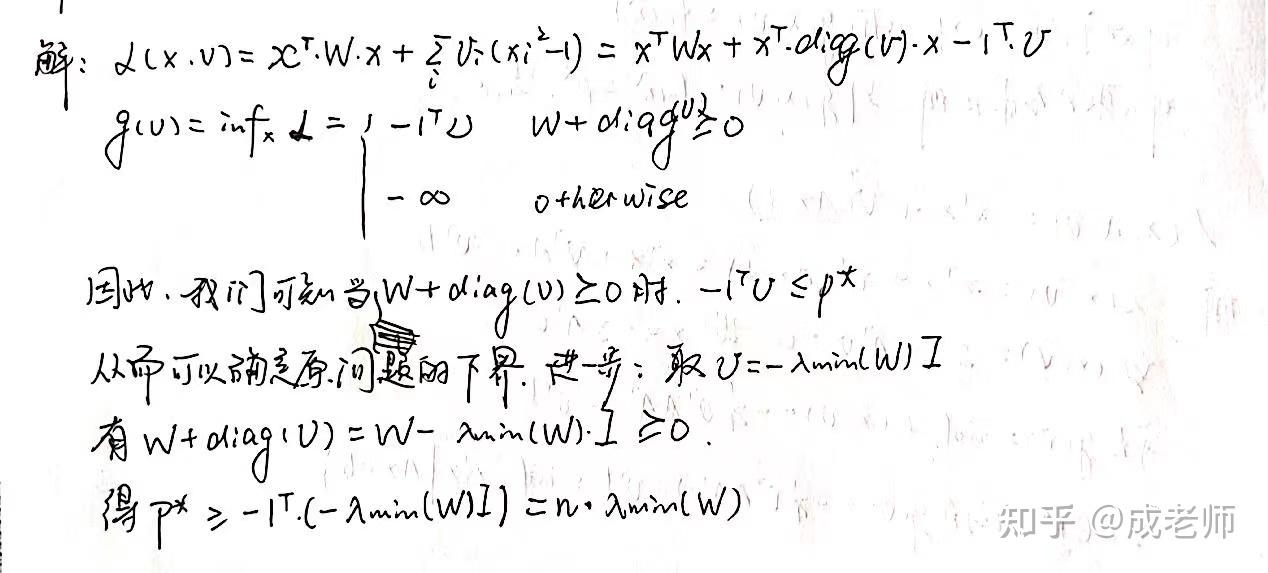 解: L(x,υ)=xᵀ·W·x+∑ᵢυᵢ·(xᵢ²-1)=xᵀWx+xᵀ·diag(υ)·x-1ᵀ·υ
g(υ)=infₓ L={ -1ᵀυ W+diag(υ)≥0
-∞ otherwise
因此,我们可知当W+diag(υ)≥0时. -1ᵀυ≤p*
从而可以确定原问题的下界. 进一步: 取υ=-λmin(W)I
有W+diag(υ)=W-λmin(W)·I≥0.
得p*≥-1ᵀ·(-λmin(W)I)=n·λmin(W)
知乎 @成老师